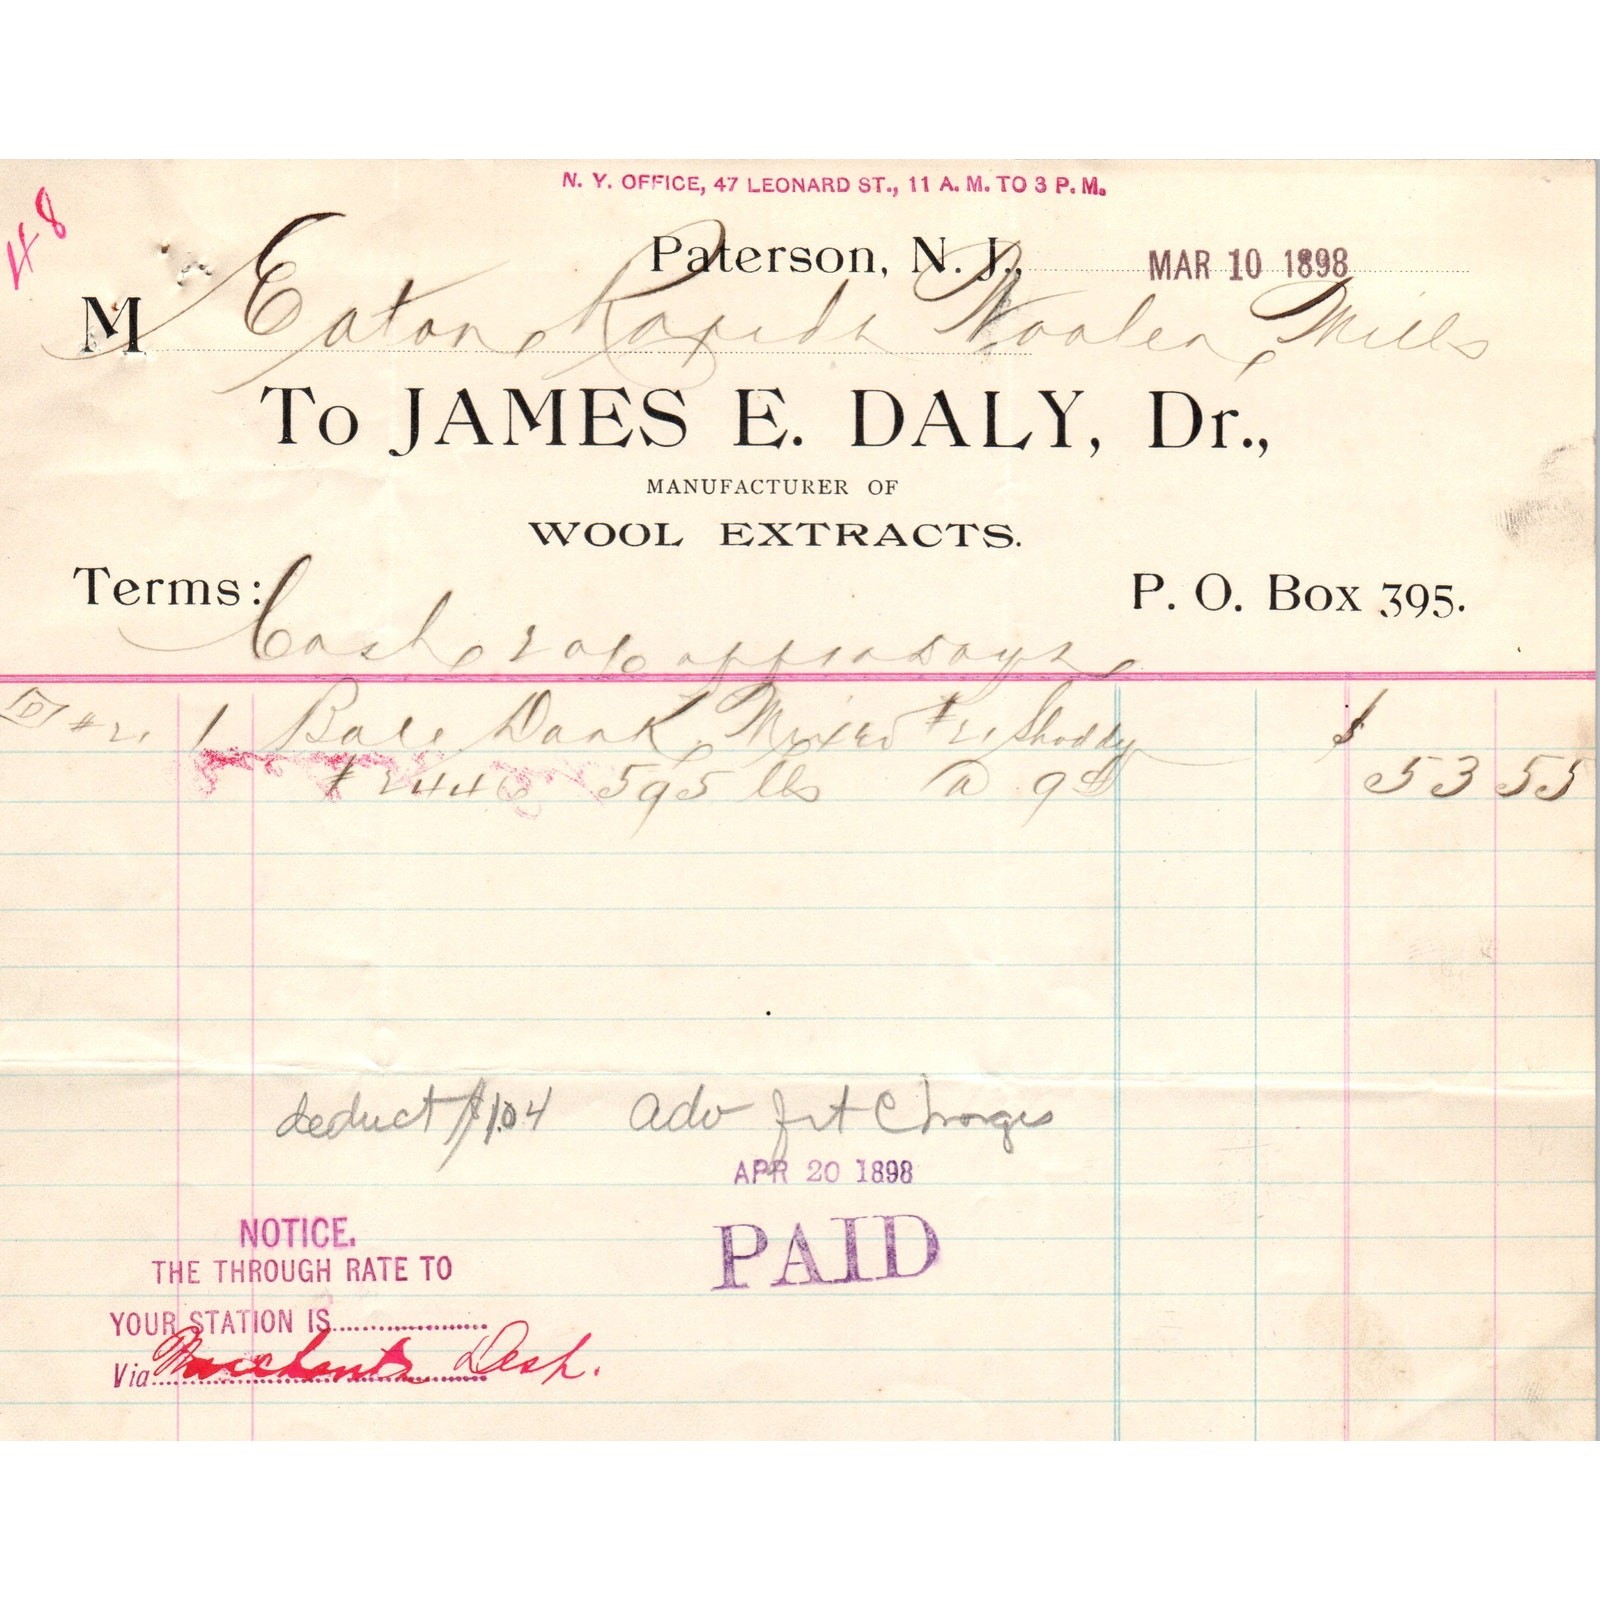 N. Y. OFFICE, 47 LEONARD ST., 11 A. M. TO 3 P. M.
48
Paterson, N. J., MAR 10 1898
M Eaton Rapids Woolen Mills
To JAMES E. DALY, Dr.,
MANUFACTURER OF
WOOL EXTRACTS.
Terms: Cash
P. O. Box 395.
D #21 1 Bale Dark Mixed #21 Shoddy $
# 2446 595 lbs a 9¢ 53 55
deduct $1.04 adv frt Charges
APR 20 1898
PAID
NOTICE.
THE THROUGH RATE TO
YOUR STATION IS
Via Merchants Desp.